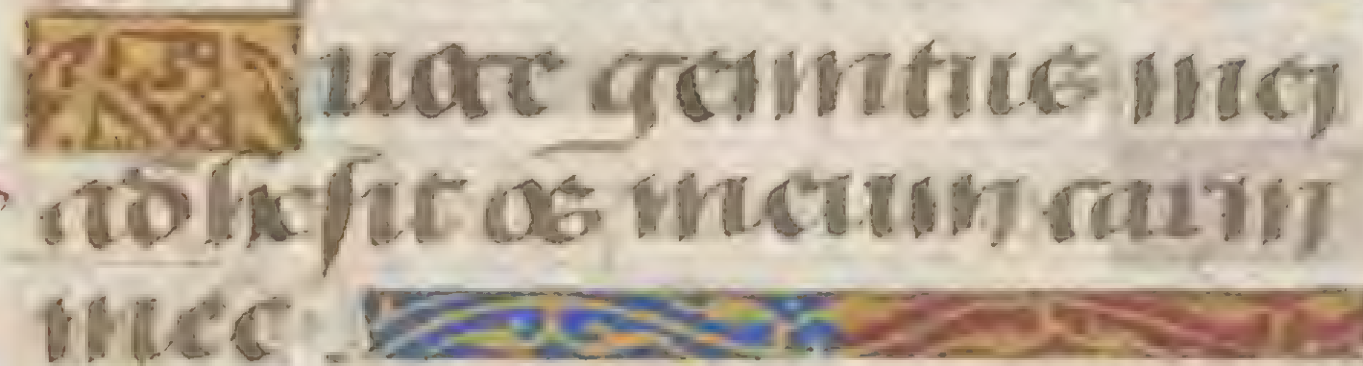 A uoce gemitus mei
adhesit os meum carni
mee